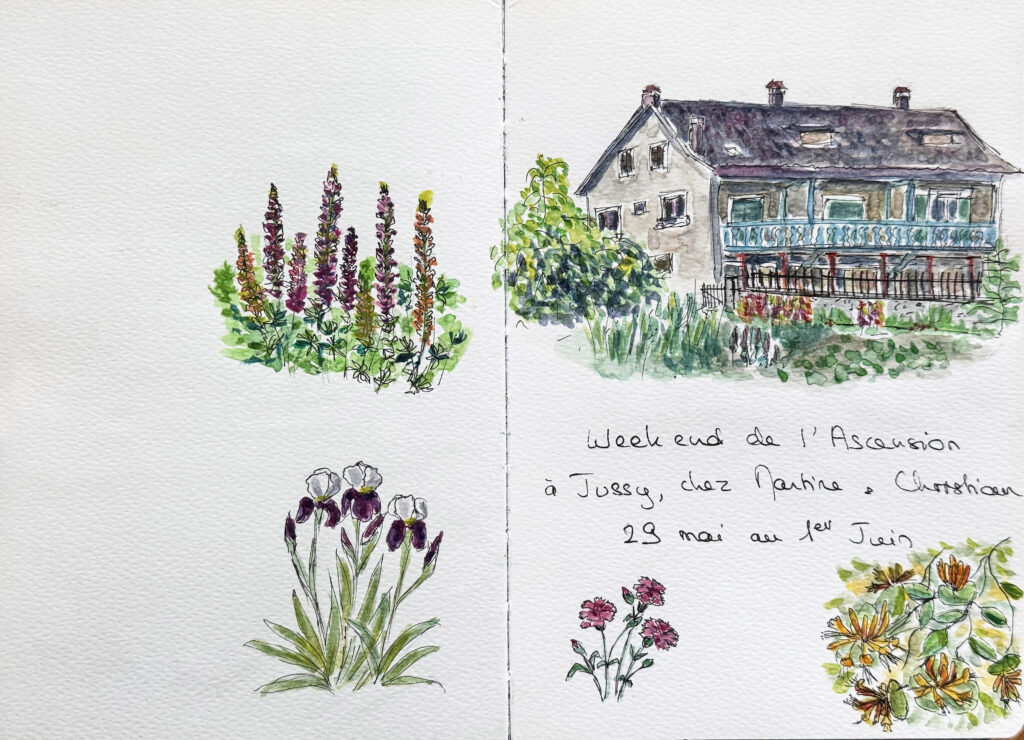 Week end de l'Ascension
à Jussy, chez Martine & Christian
29 mai au 1er Juin